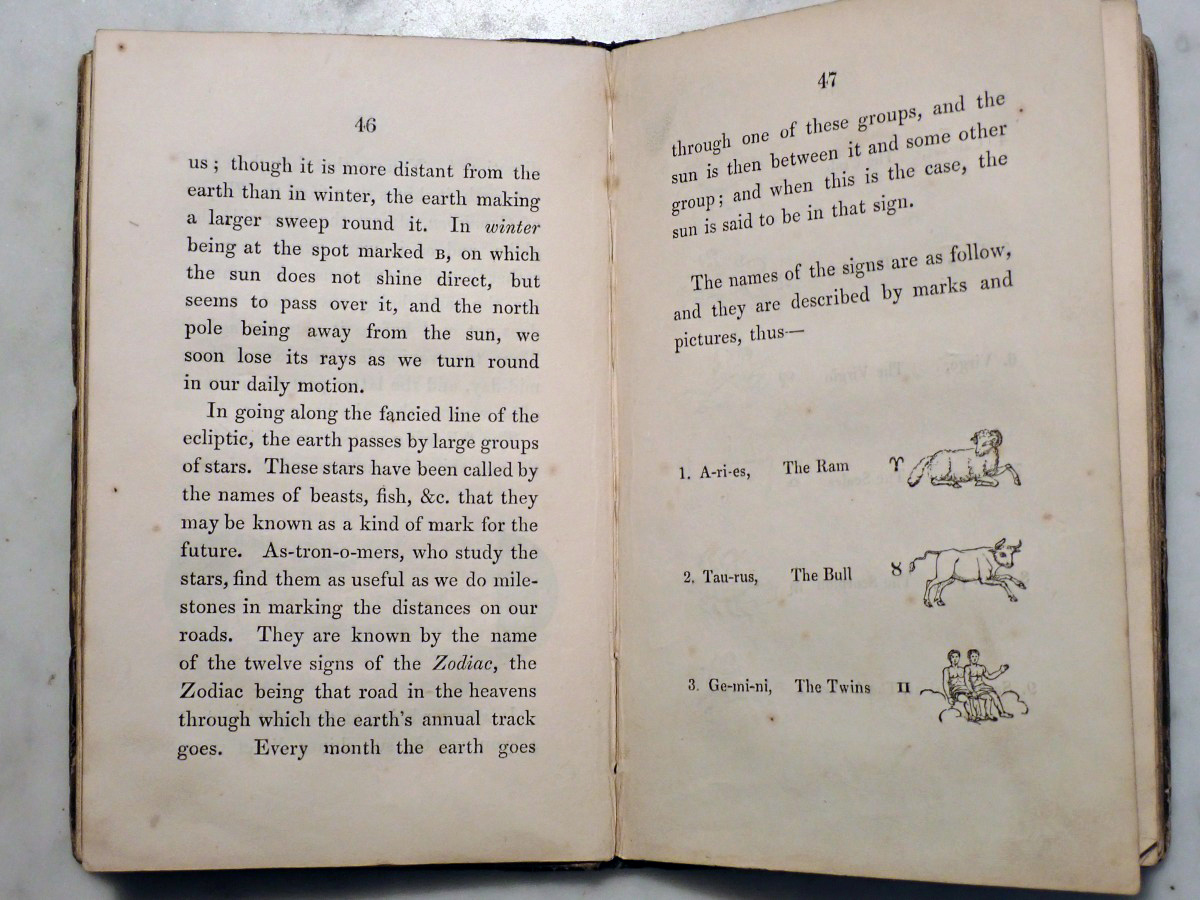 46
us ; though it is more distant from the
earth than in winter, the earth making
a larger sweep round it. In winter
being at the spot marked B, on which
the sun does not shine direct, but
seems to pass over it, and the north
pole being away from the sun, we
soon lose its rays as we turn round
in our daily motion.
In going along the fancied line of the
ecliptic, the earth passes by large groups
of stars. These stars have been called by
the names of beasts, fish, &c. that they
may be known as a kind of mark for the
future. As-tron-o-mers, who study the
stars, find them as useful as we do mile-
stones in marking the distances on our
roads. They are known by the name
of the twelve signs of the Zodiac, the
Zodiac being that road in the heavens
through which the earth's annual track
goes. Every month the earth goes
47
through one of these groups, and the
sun is then between it and some other
group ; and when this is the case, the
sun is said to be in that sign.
The names of the signs are as follow,
and they are described by marks and
pictures, thus—
1. A-ri-es, The Ram ♈
2. Tau-rus, The Bull ♉
3. Ge-mi-ni, The Twins ♊